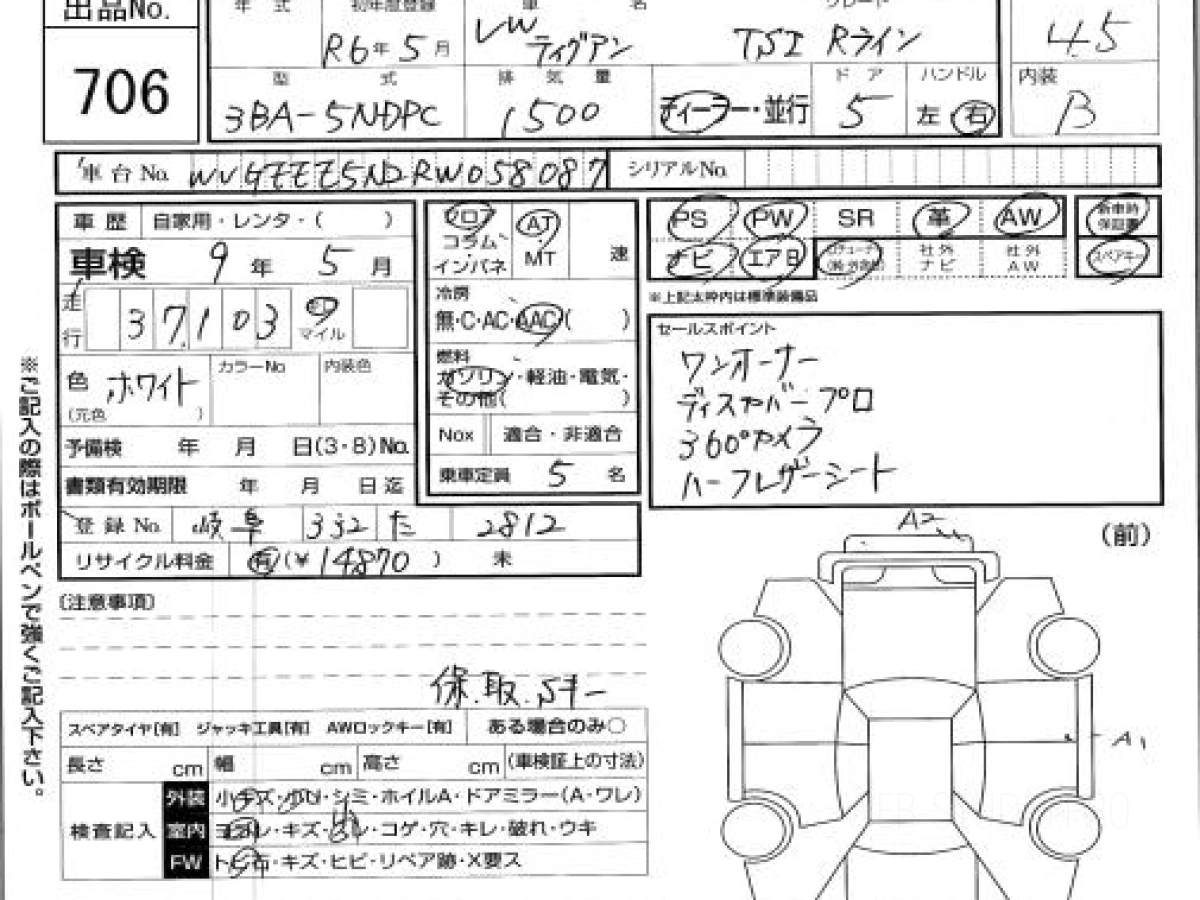 出品No.
706
年 式
初年度登録
R6年5月
車 名
VW ティグアン
グレード
TSI Rライン
4.5
型 式
3BA-5NDPC
排 気 量
1500
ディーラー・並行
ドア
5
ハンドル
左 右
内装
B
車台No. WVGZZZ5NDRW058087
シリアルNo.
車 歴 自家用・レンタ・( )
車検 9年 5月
走行 37,103 キロ マイル
色 ホワイト
(元色 )
カラーNo
内装色
予備検 年 月 日(3・8)No.
書類有効期限 年 月 日迄
登録No. 岐阜 332 た 2812
リサイクル料金 有(¥14870 ) 未
フロア
コラム
インパネ
AT
MT
速
冷房
無・C・AC・AAC( )
燃料
ガソリン・軽油・電気・
その他( )
Nox 適合・非適合
乗車定員 5 名
PS PW SR 革 AW
ナビ エアB
社外ナビ
社外AW
新車時保証書
スペアキー
※上記太枠内は標準装備品
セールスポイント
ワンオーナー
ディスカバープロ
360°カメラ
ハーフレザーシート
※ご記入の際はボールペンで強くご記入下さい。
(注意事項)
保.取.Sキー
スペアタイヤ[有] ジャッキ工具[有] AWロックキー[有] ある場合のみ○
長さ cm 幅 cm 高さ cm (車検証上の寸法)
検査記入
外装 小キズ・小凹・シミ・ホイルA・ドアミラー(A・ワレ)
室内 ヨゴレ・キズ・スレ・コゲ・穴・キレ・破れ・ウキ
FW トビ石・キズ・ヒビ・リペア跡・X要ス
(前)
A2
A1